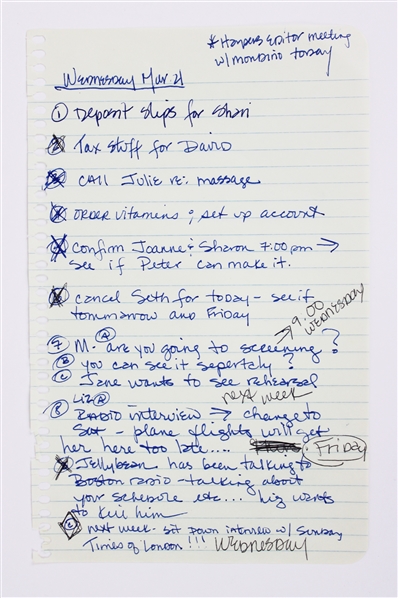 * Harpers Editor meeting
w/ mondino today
Wednesday Mar 21
① Deposit slips for Shari
Tax stuff for David
Call Julie re: massage
order vitamins; set up account
Confirm Joanne & Sharon 7:00pm →
see if Peter can make it.
cancel Seth for today - see if
tommarrow and Friday
→ 9:00
Wednesday
⑦ M. Ⓐ are you going to screening?
Ⓑ you can see it sepertaly?
Ⓒ Jane wants to see rehearsal
next week
⑧ Liz Ⓐ
Radio interview → change to
Sat - plane flights will get
her here too late....
Friday
Jellybean has been talking to
Boston radio - talking about
your schedule etc... Liz wants
to kill him
Ⓒ next week - sit down interview w/ Sunday
Times of London!!! Wednesday